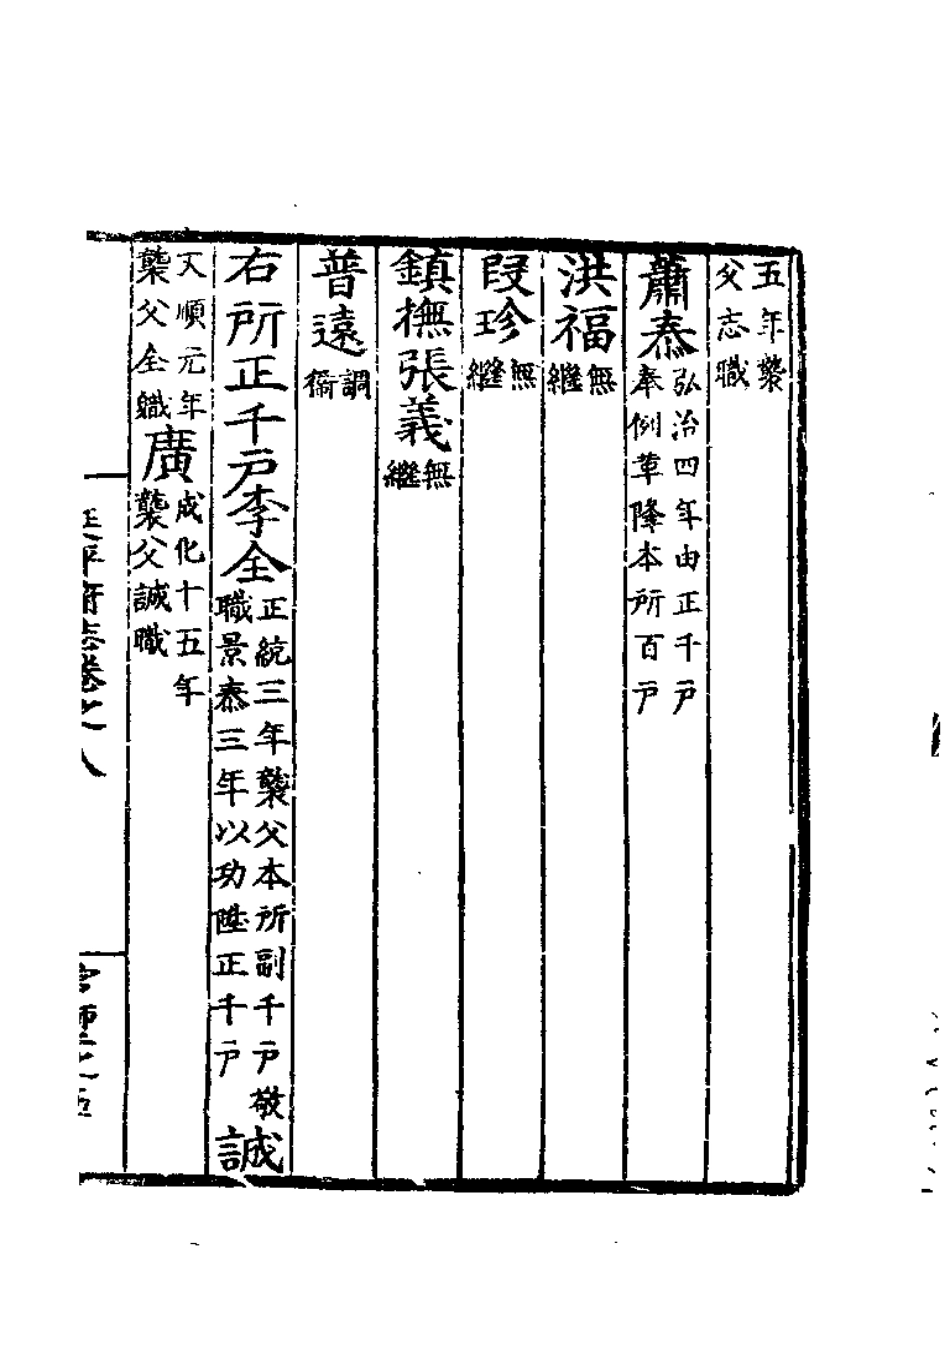 五年襲父志職
蕭泰弘治四年由正千戶奉例革降本所百戶
洪福無繼
段珍無繼
鎮撫張義無繼
普遠調衛
右所正千戶李全正統三年襲父本所副千戶敬職景泰三年以功陞正千戶誠
天順元年襲父全職廣成化十五年襲父誠職
平府志卷之八